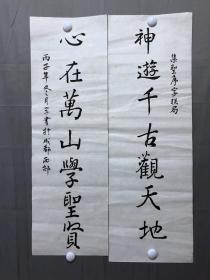 集聖序字联句
神遊千古觀天地
心在萬山學聖賢
丙子年冬月京書於成都西郊